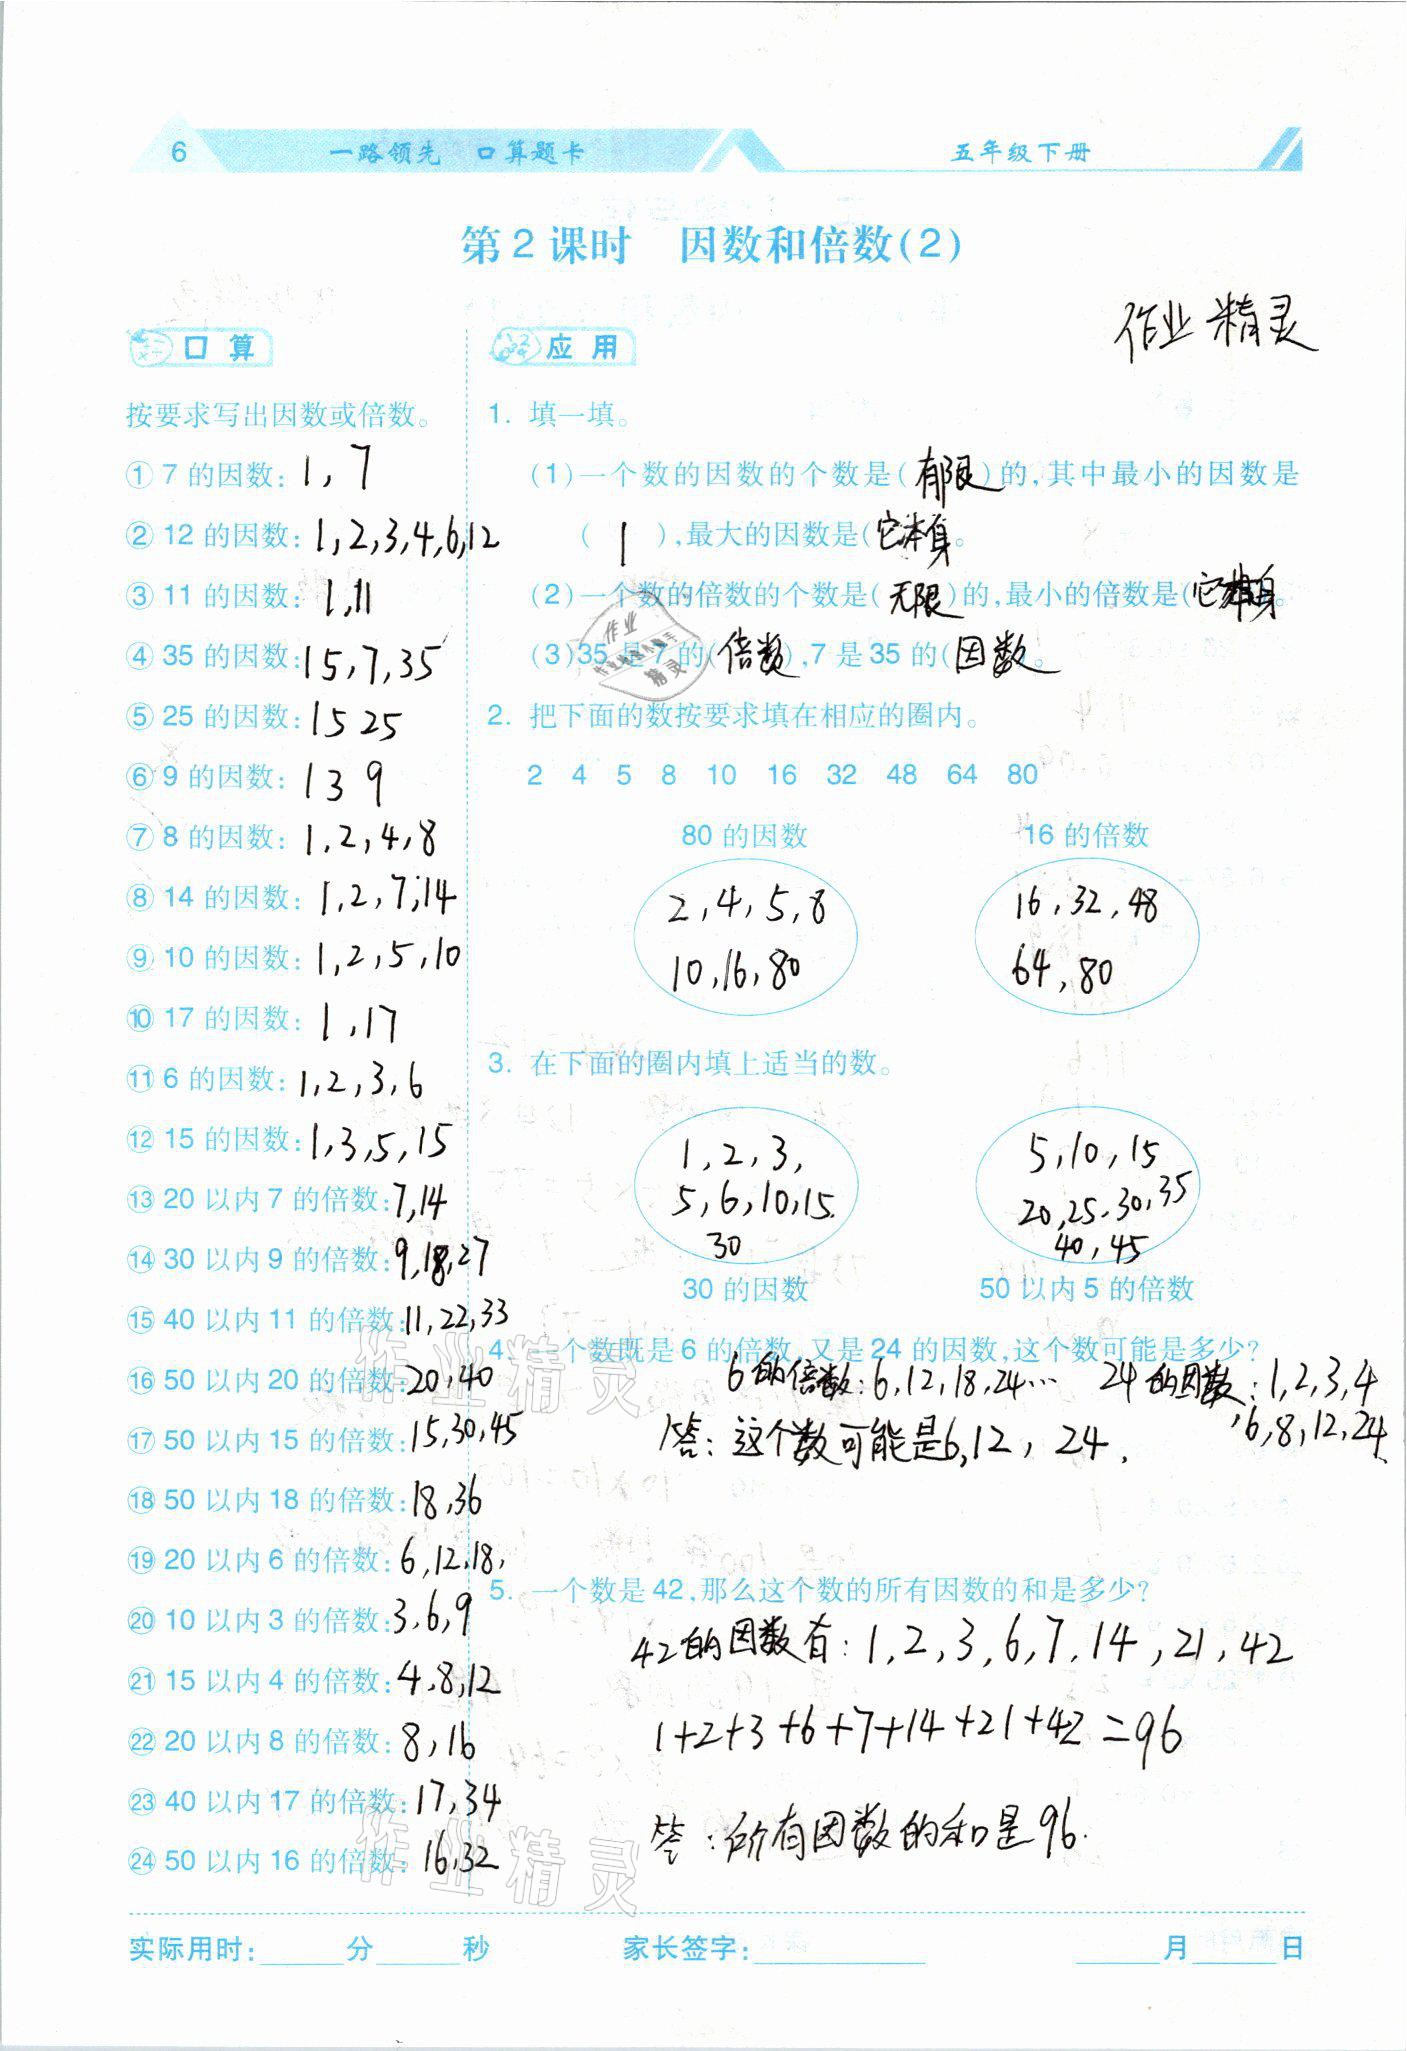 6 一路领先 口算题卡 五年级下册
第2课时 因数和倍数(2)
作业精灵
口算
按要求写出因数或倍数。
① 7 的因数: 1, 7
② 12 的因数: 1,2,3,4,6,12
③ 11 的因数: 1,11
④ 35 的因数: 1 5,7,35
⑤ 25 的因数: 1 5 25
⑥ 9 的因数: 1 3 9
⑦ 8 的因数: 1,2,4,8
⑧ 14 的因数: 1,2,7,14
⑨ 10 的因数: 1,2,5,10
⑩ 17 的因数: 1,17
⑪ 6 的因数: 1,2,3,6
⑫ 15 的因数: 1,3,5,15
⑬ 20 以内 7 的倍数: 7,14
⑭ 30 以内 9 的倍数: 9,18,27
⑮ 40 以内 11 的倍数: 11,22,33
⑯ 50 以内 20 的倍数: 20,40
⑰ 50 以内 15 的倍数: 15,30,45
⑱ 50 以内 18 的倍数: 18,36
⑲ 20 以内 6 的倍数: 6,12,18,
⑳ 10 以内 3 的倍数: 3,6,9
㉑ 15 以内 4 的倍数: 4,8,12
㉒ 20 以内 8 的倍数: 8,16
㉓ 40 以内 17 的倍数: 17,34
㉔ 50 以内 16 的倍数: 16,32
应用
1. 填一填。
(1)一个数的因数的个数是(有限)的,其中最小的因数是
( 1 ),最大的因数是(它本身。
(2)一个数的倍数的个数是(无限)的,最小的倍数是(它本身。
(3)35 是 7 的(倍数),7 是 35 的(因数。
作业
精灵
2. 把下面的数按要求填在相应的圈内。
2 4 5 8 10 16 32 48 64 80
80 的因数 16 的倍数
2,4,5,8 16,32,48
10,16,80 64,80
3. 在下面的圈内填上适当的数。
1,2,3, 5,10,15
5,6,10,15. 20,25,30,35
30 40,45
30 的因数 50 以内 5 的倍数
4. 一个数既是 6 的倍数,又是 24 的因数,这个数可能是多少?
6的倍数:6,12,18,24… 24的因数:1,2,3,4
,6,8,12,24
答:这个数可能是6,12,24.
5. 一个数是 42,那么这个数的所有因数的和是多少?
42的因数有:1,2,3,6,7,14,21,42
1+2+3+6+7+14+21+42=96
答:所有因数的和是96.
作业精灵
作业精灵
实际用时:____分____秒 家长签字:________ ____月____日